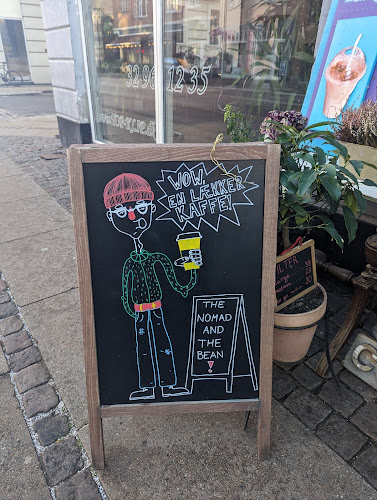 32 96 12 35
WOW,
EN LÆKKER
KAFFE!
THE
NOMAD
AND THE
BEAN